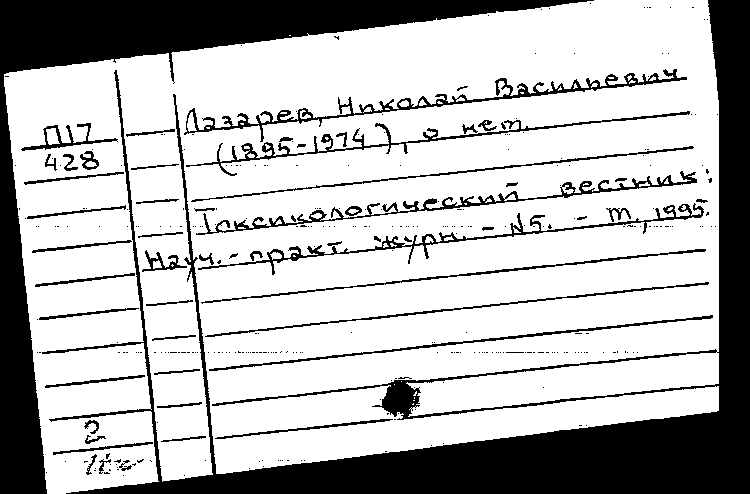 Лазарев, Николай Васильевич
П17
(1895-1974), о нем.
428
Токсикологический вестник:
Науч.-практ. журн. - №5. - М., 1995.
2